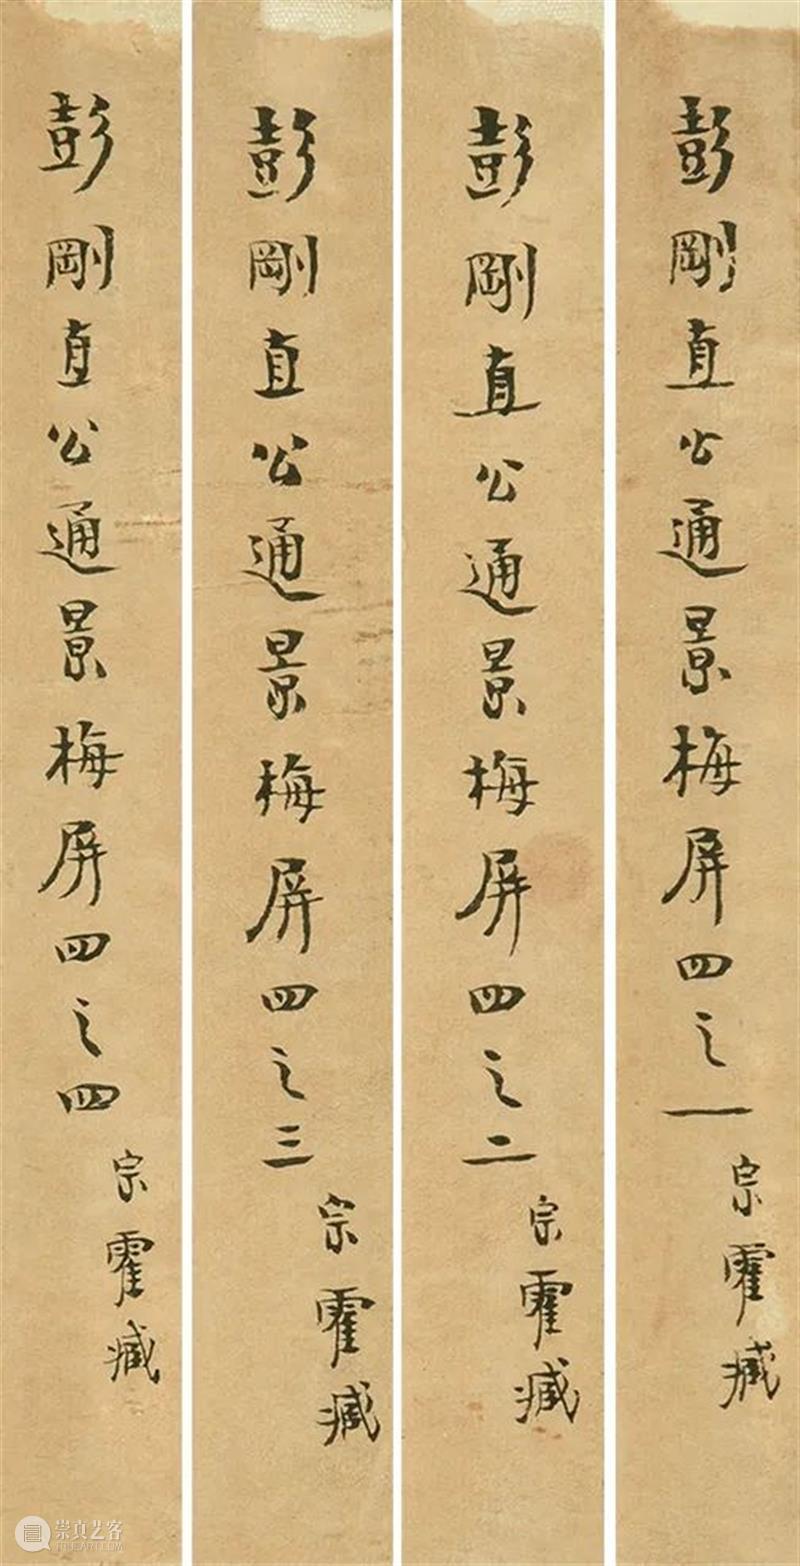 彭剛直公通景梅屏四之一
宗霍臧
彭剛直公通景梅屏四之二
宗霍臧
彭剛直公通景梅屏四之三
宗霍臧
彭剛直公通景梅屏四之四
宗霍臧
崇真艺客